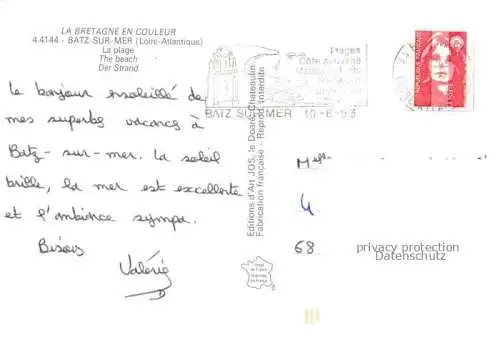 LA BRETAGNE EN COULEUR
4.4144 - BATZ-SUR-MER (Loire-Atlantique)
La plage
The beach
Der Strand
Le bonjour ensoleillé de
mes superbes vacances à
Batz-sur-mer. La soleil
brille, la mer est excellente
et l'ambiance sympa.
Bisous
Valérie
Editions d'Art JOS, le Doaré, Chateaulin
Fabrication française - Reprod. interdite
Plages
Côte sauvage
BATZ SUR MER 10-8-93
REPUBLIQUE FRANCAISE
Melle
4
68
privacy protection
Datenschutz